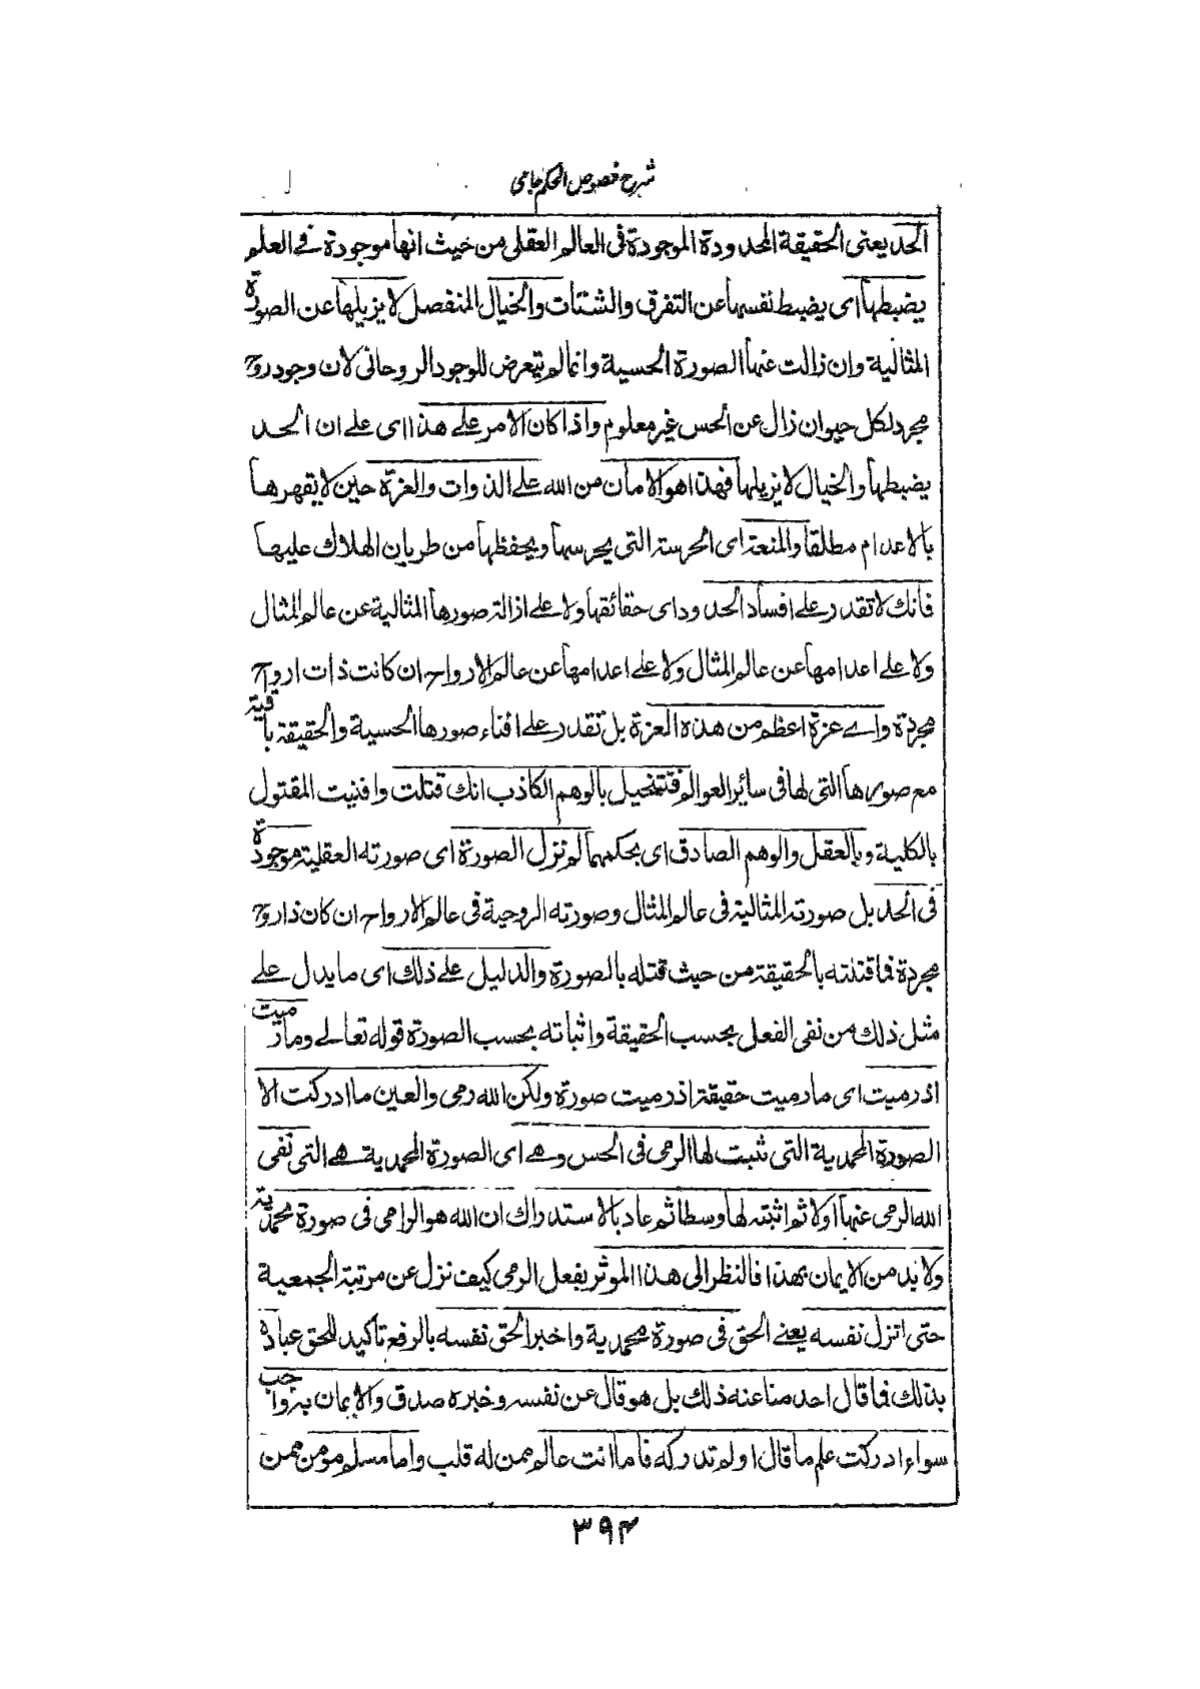 شرح فصوص الحكم جامي
الحد يعنى الحقيقة المحدودة الموجودة فى العالم العقلى من حيث انها موجودة فے العلم
يضبطها اى يضبط نفسها عن التفرق والشتات والخيال المنفصل لا يزيلها عن الصورة
المثالية وان زالت عنها الصورة الحسية وانما لم يتعرض للوجود الروحانى لان وجود روح
مجرد لكل حيوان زال عن الحس غير معلوم واذا كان الامر علے هذا اى علے ان الحد
يضبطها والخيال لا يزيلها فهذا هو الامان من الله علے الذوات والعزة حين لا يقهرها
بالاعدام مطلقا والمنعة اى الحرسة التى يحرسها ويحفظها من طريان الهلاك عليها
فانك لا تقدر علے افساد الحدود اى حقائقها ولا علے ازالة صورها المثالية عن عالم المثال
ولا علے اعدامها عن عالم المثال ولا علے اعدامها عن عالم الارواح ان كانت ذات ارواح
مجردة واے عزة اعظم من هذه العزة بل تقدر علے افناء صورها الحسية والحقيقة باقية
مع صورها التى لها فى سائر العوالم فتتخيل بالوهم الكاذب انك قتلت وافنيت المقتول
بالكلية وبالعقل والوهم الصادق اى بحكمهما لم نزل الصورة اى صورته العقلية موجودة
فى الحد بل صورته المثالية فى عالم المثال وصورته الروحية فى عالم الارواح ان كان ذا روح
مجردة فما قتلته بالحقيقة من حيث قتله بالصورة والدليل علے ذلك اى ما يدل علے
مثل ذلك من نفى الفعل بحسب الحقيقة واثباته بحسب الصورة قوله تعالے وما رميت
اذ رميت اى ما رميت حقيقة اذ رميت صورة ولكن الله رمى والعين ما ادركت الا
الصورة المحمدية التى ثبت لها الرمى فى الحس وهے اى الصورة المحمدية هے التى نفى
الله الرمى عنها اولا ثم اثبته لها وسطا ثم عاد بالاستدراك ان الله هو الرامى فى صورة محمدية
ولا بد من الايمان بهذا فالنظر الى هذا الموثر بفعل الرمى كيف نزل عن مرتبة الجمعية
حتى انزل نفسه يعنے الحق فى صورة محمدية واخبر الحق نفسه بالرفع تاكيد للحق عباده
بذلك فما قال احد منا عنه ذلك بل هو قال عن نفسه وخبره صدق والايمان به واجب
سواء ادركت علم ما قال او لم تدركه فاما انت عالم ممن له قلب واما مسلم مومن ممن
۳۹۴